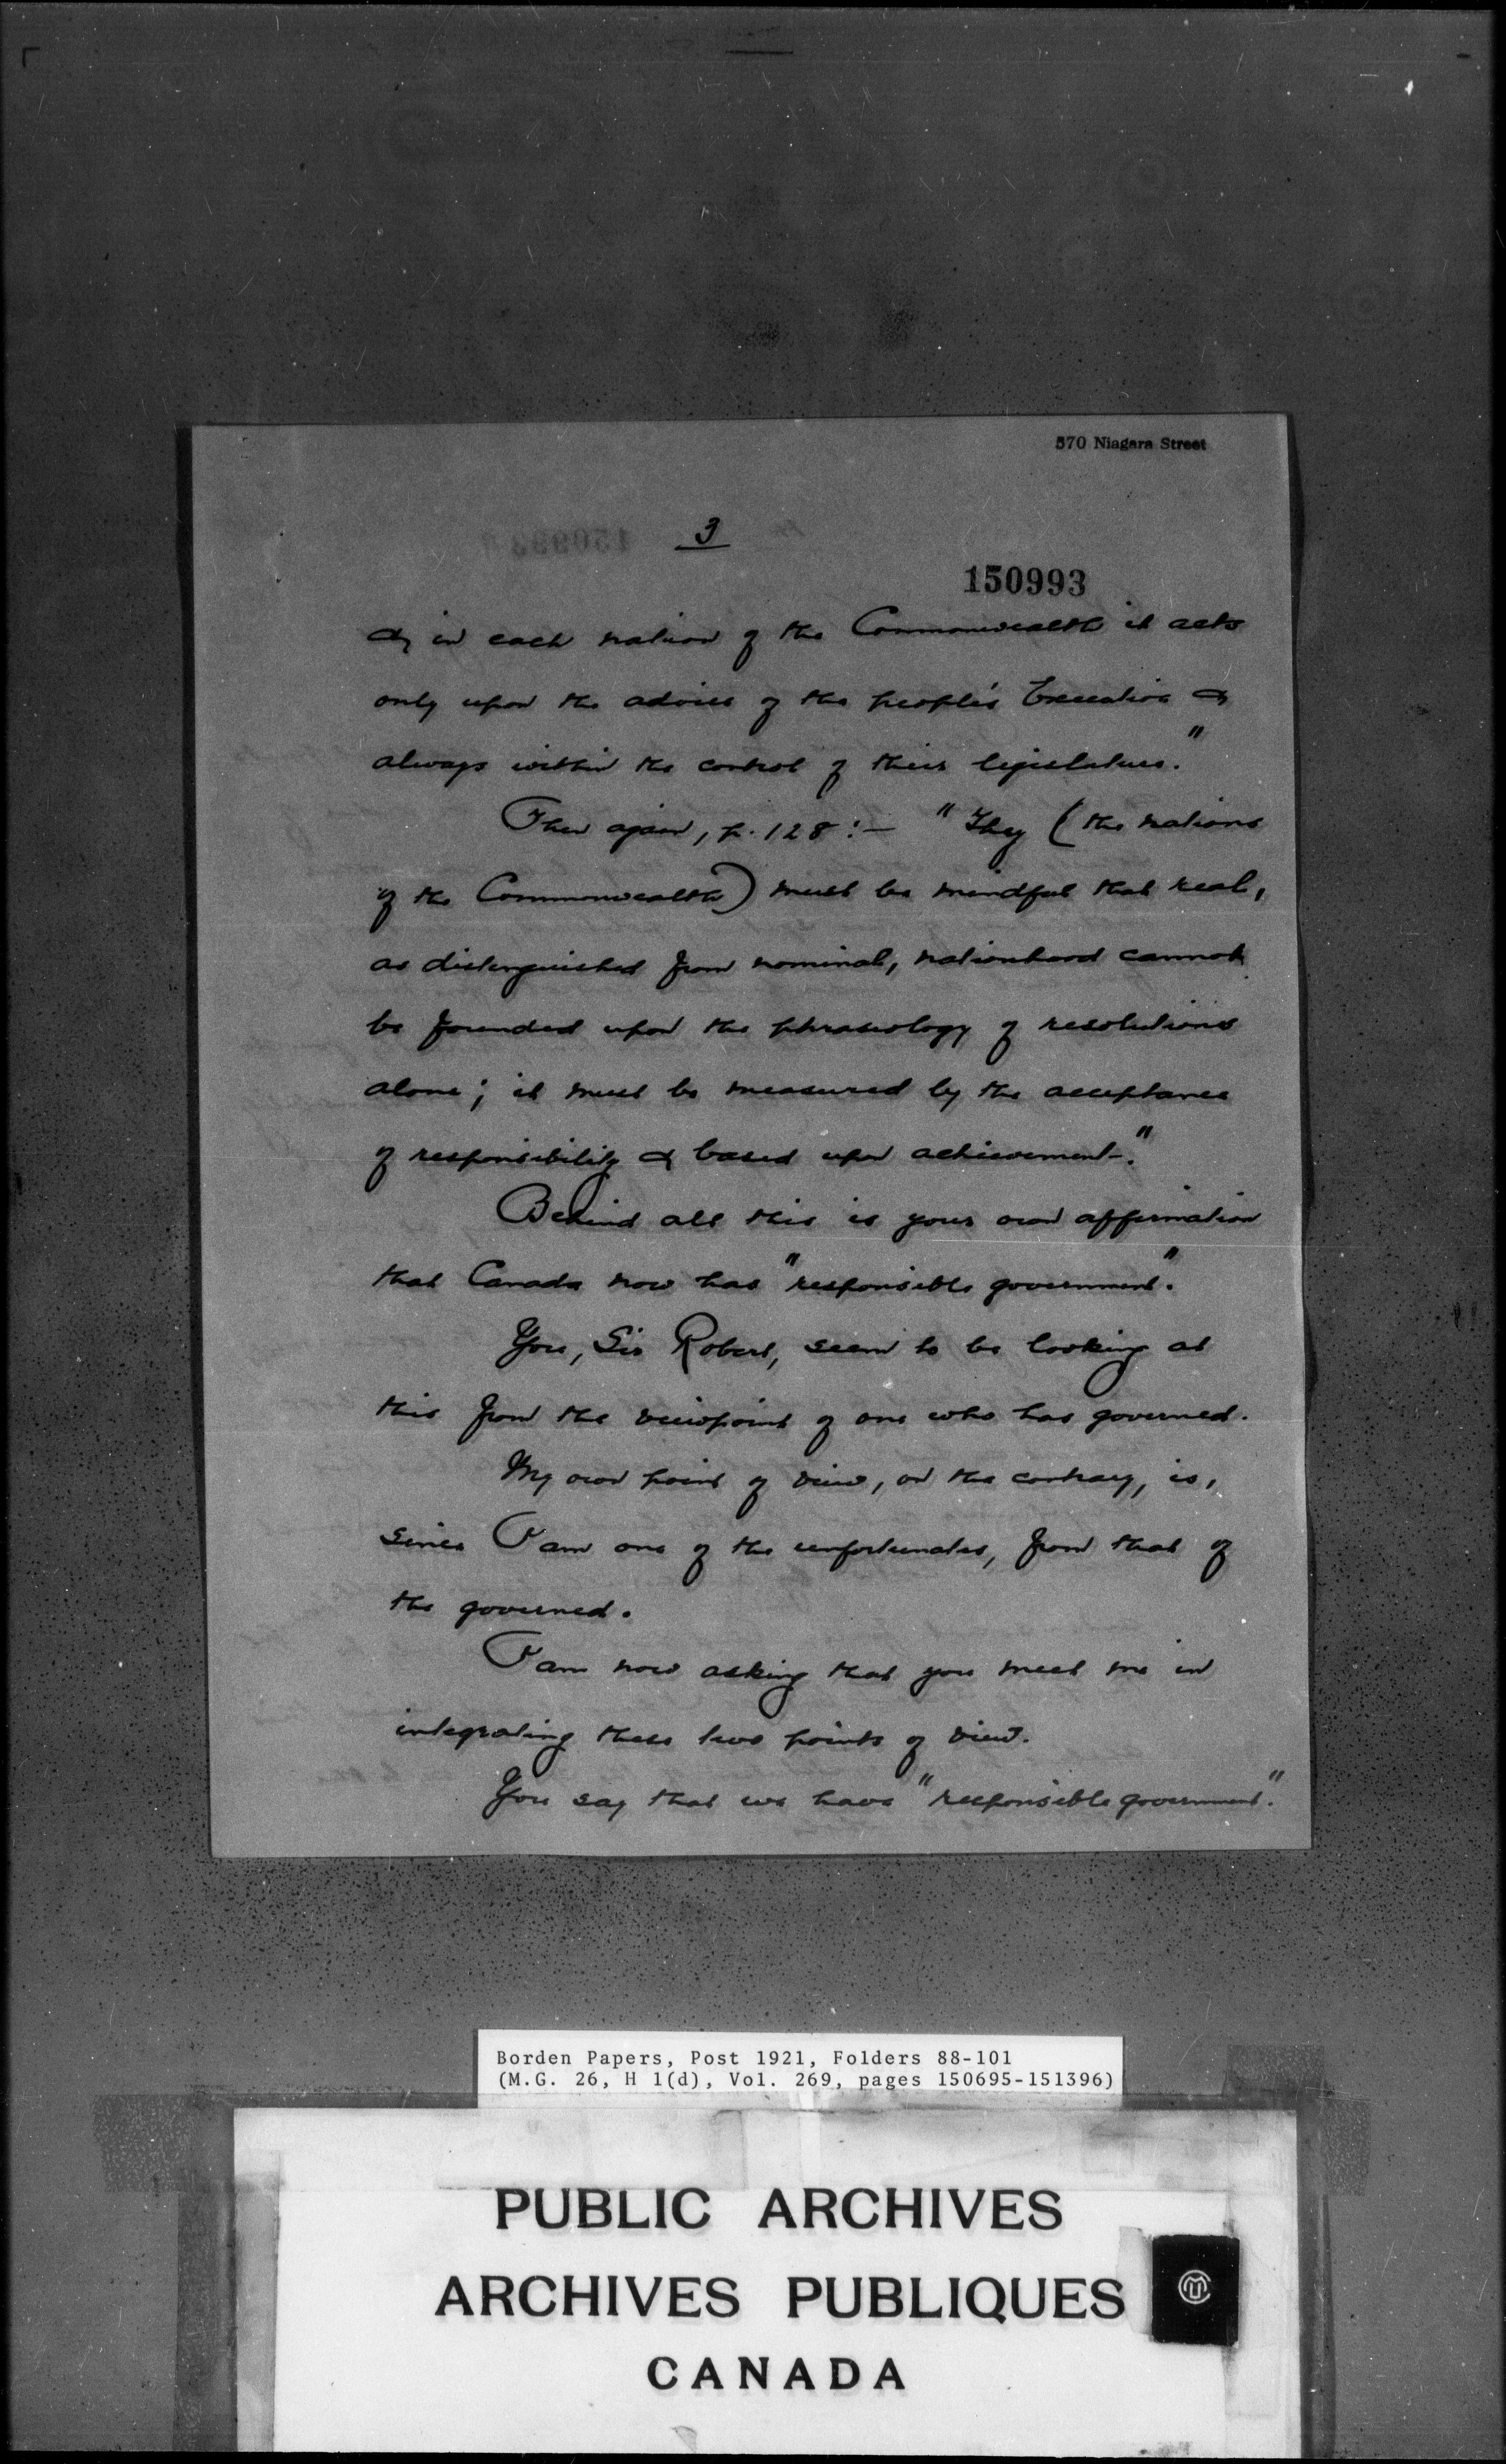 570 Niagara Street
3
150993
& in each nation of the Commonwealth it acts
only upon the advice of the people's Executive &
always within the control of their legislature."
Then again, p. 128 :— "They (the nations
of the Commonwealth) must be mindful that real,
as distinguished from nominal, nationhood cannot
be founded upon the phraseology of resolutions
alone; it must be measured by the acceptance
of responsibility & based upon achievement."
Behind all this is your own affirmation
that Canada now has "responsible government".
You, Sir Robert, seem to be looking at
this from the viewpoint of one who has governed.
My own point of view, on the contrary, is,
since I am one of the unfortunates, from that of
the governed.
I am now asking that you meet me in
integrating these two points of view.
You say that we have "responsible government".
Borden Papers, Post 1921, Folders 88-101
(M.G. 26, H 1(d), Vol. 269, pages 150695-151396)
PUBLIC ARCHIVES
ARCHIVES PUBLIQUES
CANADA